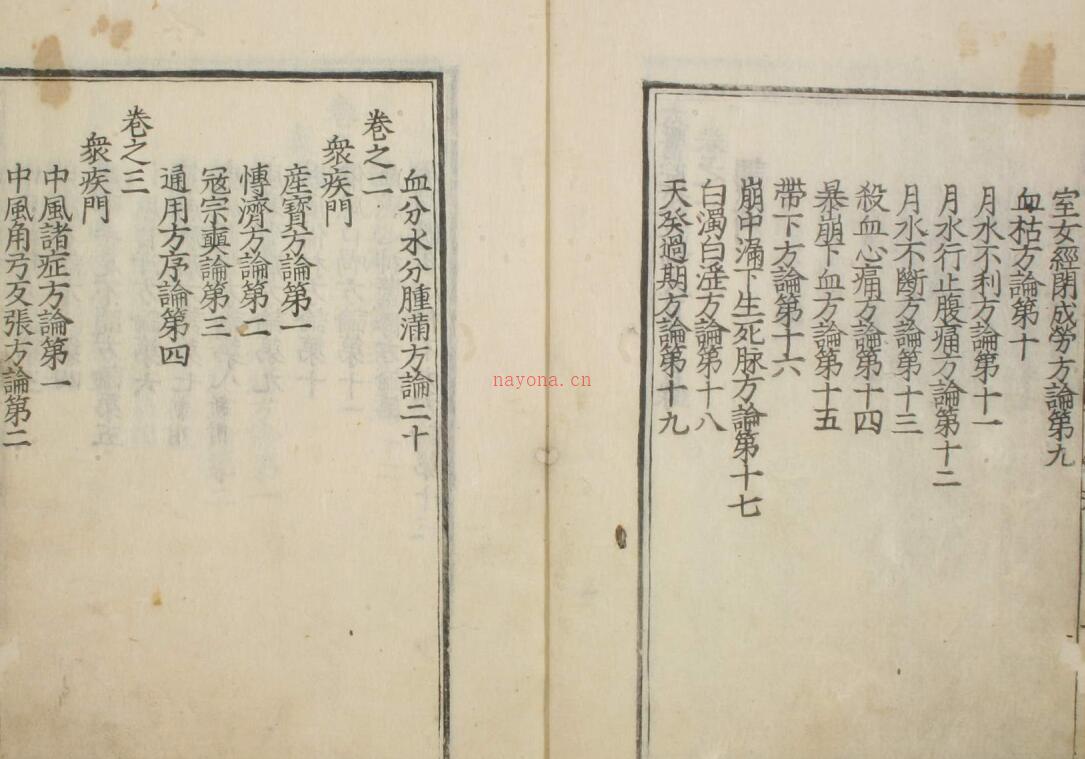 室女經閉成勞方論第九
血枯方論第十
月水不利方論第十一
月水行止腹痛方論第十二
月水不斷方論第十三
殺血心痛方論第十四
暴崩下血方論第十五
帶下方論第十六
崩中漏下生死脉方論第十七
白濁白淫方論第十八
天癸過期方論第十九
血分水分腫滿方論二十
卷之二
衆疾門
産寶方論第一
博濟方論第二
冦宗奭論第三
通用方序論第四
卷之三
衆疾門
中風諸症方論第一
中風角弓反張方論第二
nayona.cn